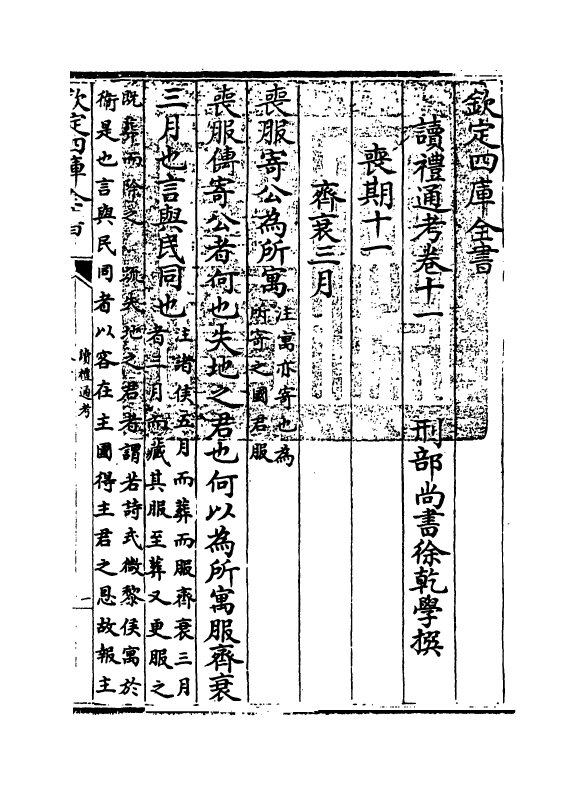 欽定四庫全書
讀禮通考卷十一　刑部尚書徐乾學撰
喪期十一
齊衰三月
喪服寄公為所寓
注寓亦寄也為
所寄之國君服
喪服傳寄公者何也失地之君也何以為所寓服齊衰
三月也言與民同也
注諸侯五月而葬而服齊衰三月
者三月而藏其服至葬又更服之
既葬而除之　疏失地之君者謂若詩式微黎侯寓於
衛是也言與民同者以客在主國得主君之恩故報主
欽定四庫全書
讀禮通考
一